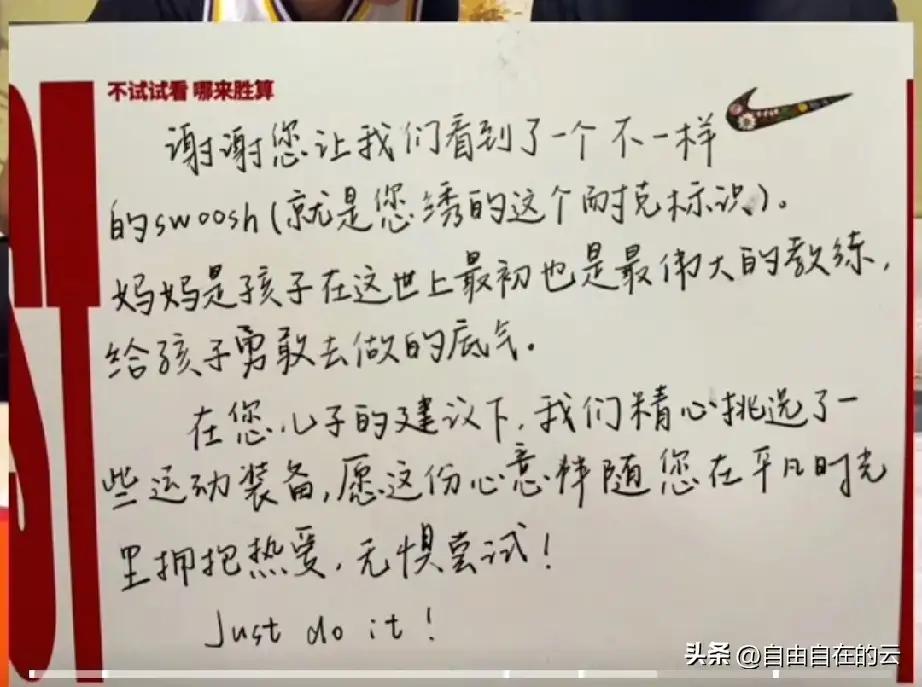 不试试看 哪来胜算
谢谢您让我们看到了一个不一样
的swoosh(就是您绣的这个耐克标识)。
妈妈是孩子在这世上最初也是最伟大的教练,
给孩子勇敢去做的底气。
在您儿子的建议下,我们精心挑选了一
些运动装备,愿这份心意伴随您在平凡时光
里拥抱热爱,无惧尝试!
Just do it!
头条 @自由自在的云